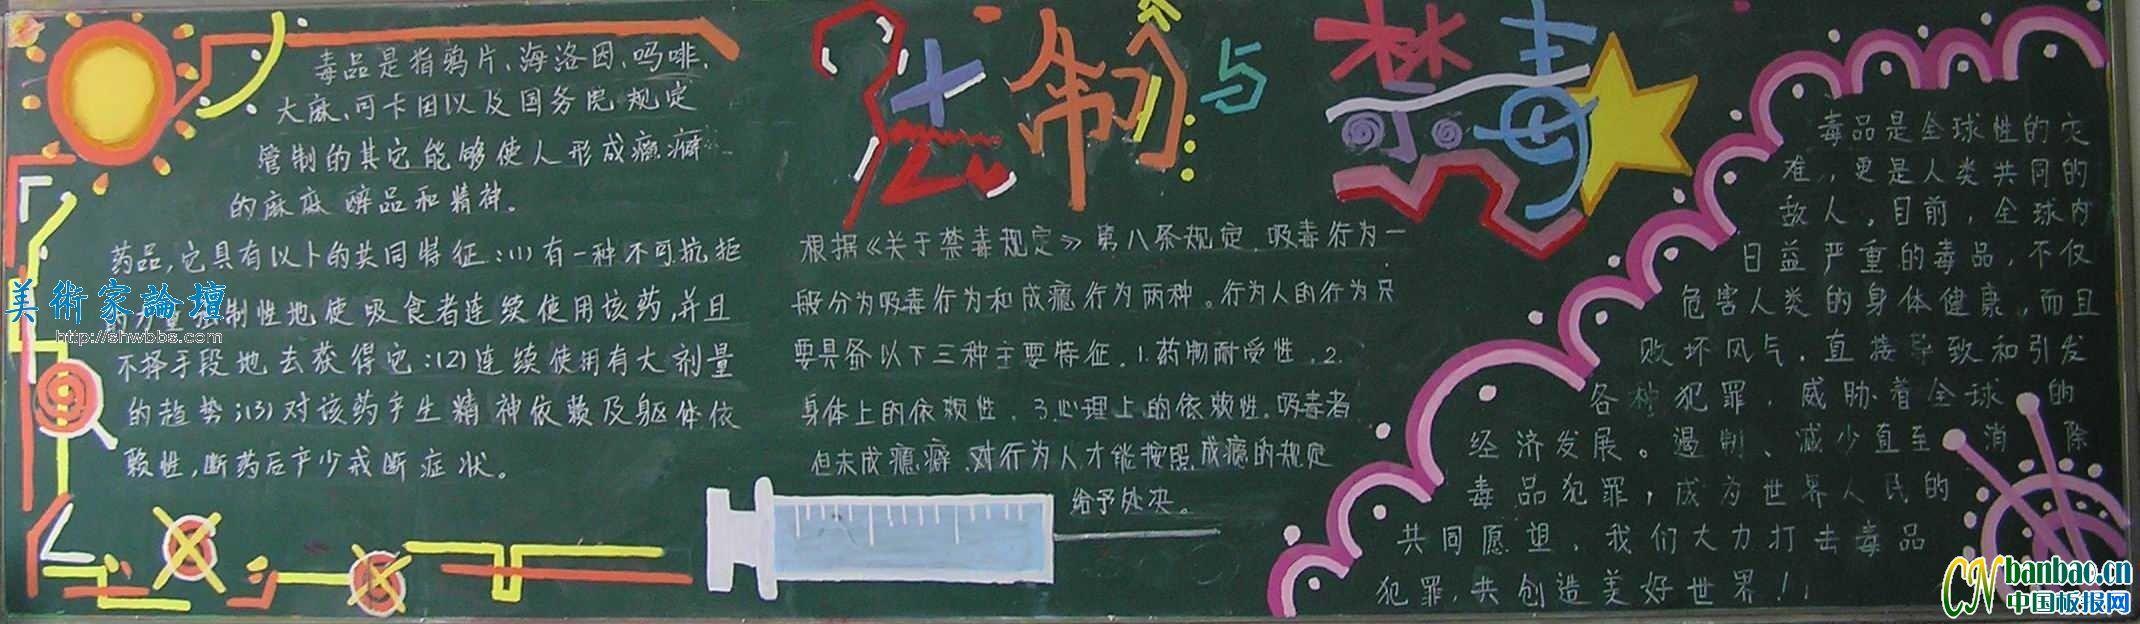 法制与禁毒
毒品是指鸦片、海洛因、吗啡、
大麻、可卡因以及国务院规定
管制的其它能够使人形成瘾癖
的麻麻醉品和精神。
药品,它具有以下的共同特征:(1)有一种不可抗拒
制性地使吸食者连续使用该药,并且
不择手段地去获得它:(2)连续使用有大剂量
的趋势;(3)对该药产生精神依赖及躯体依
赖性,断药后产少戒断症状。
根据《关于禁毒规定》第八条规定,吸毒行为一
般分为吸毒行为和成瘾行为两种。行为人的行为只
要具备以下三种主要特征.1.药物耐受性.2.
身体上的依赖性.3.心理上的依赖性.吸毒者
但未成瘾癖.对行为人才能按照成瘾的规定
给予处决。
毒品是全球性的灾
难,更是人类共同的
敌人,目前,全球内
日益严重的毒品,不仅
危害人类的身体健康,而且
败坏风气,直接导致和引发
各种犯罪,威胁着全球的
经济发展。遏制、减少直至消除
毒品犯罪,成为世界人民的
共同愿望,我们大力打击毒品
犯罪,共创造美好世界!
美術家論壇
http://shwbbs.com
CN banbao.cn
中国板报网